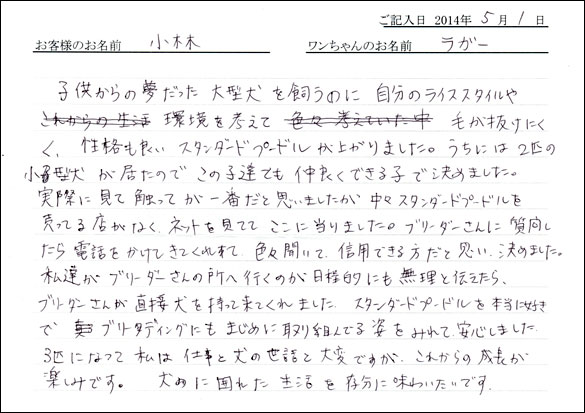 ご記入日 2014年 5月 1日
お客様のお名前 小林 ワンちゃんのお名前 ラガー
子供からの夢だった 大型犬を飼うのに 自分のライススタイルや
これからの生活 環境を考えて 色々考えていた中 毛が抜けにく
く、性格も良い スタンダードプードルが上がりました。うちには2匹の
小型犬が居たので この子達ても仲良くできる子で決めました。
実際に見て触ってが一番だと思いましたが 中々スタンダードプードルを
売ってる店がなく、ネットを見てて ここに当りました。ブリーダーさんに質問し
たら電話をかけてきてくれて、色々聞いて、信用できる方だと思い、決めました。
私達がブリーダーさんの所へ行くのが日程的にも無理と伝えたら、
ブリーダーさんが直接犬を持って来てくれました。スタンダードプードルを本当に好き
で ブリーディングにもまじめに取り組んでる姿をみれて、安心しました。
3匹になって私は仕事と犬の世話と大変ですが、これからの成長が
楽しみです。 犬めに囲れた生活を存分に味わいたいです。